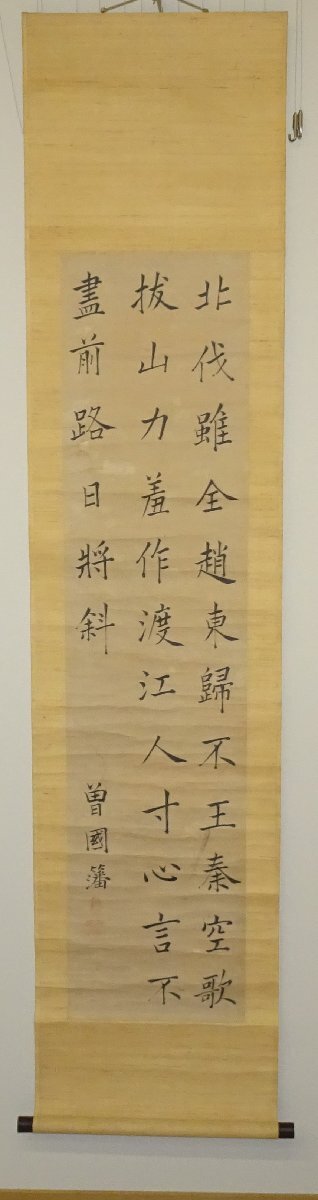 北伐雖全趙東歸不王秦空歌
拔山力羞作渡江人寸心言不
盡前路日將斜
曽國藩